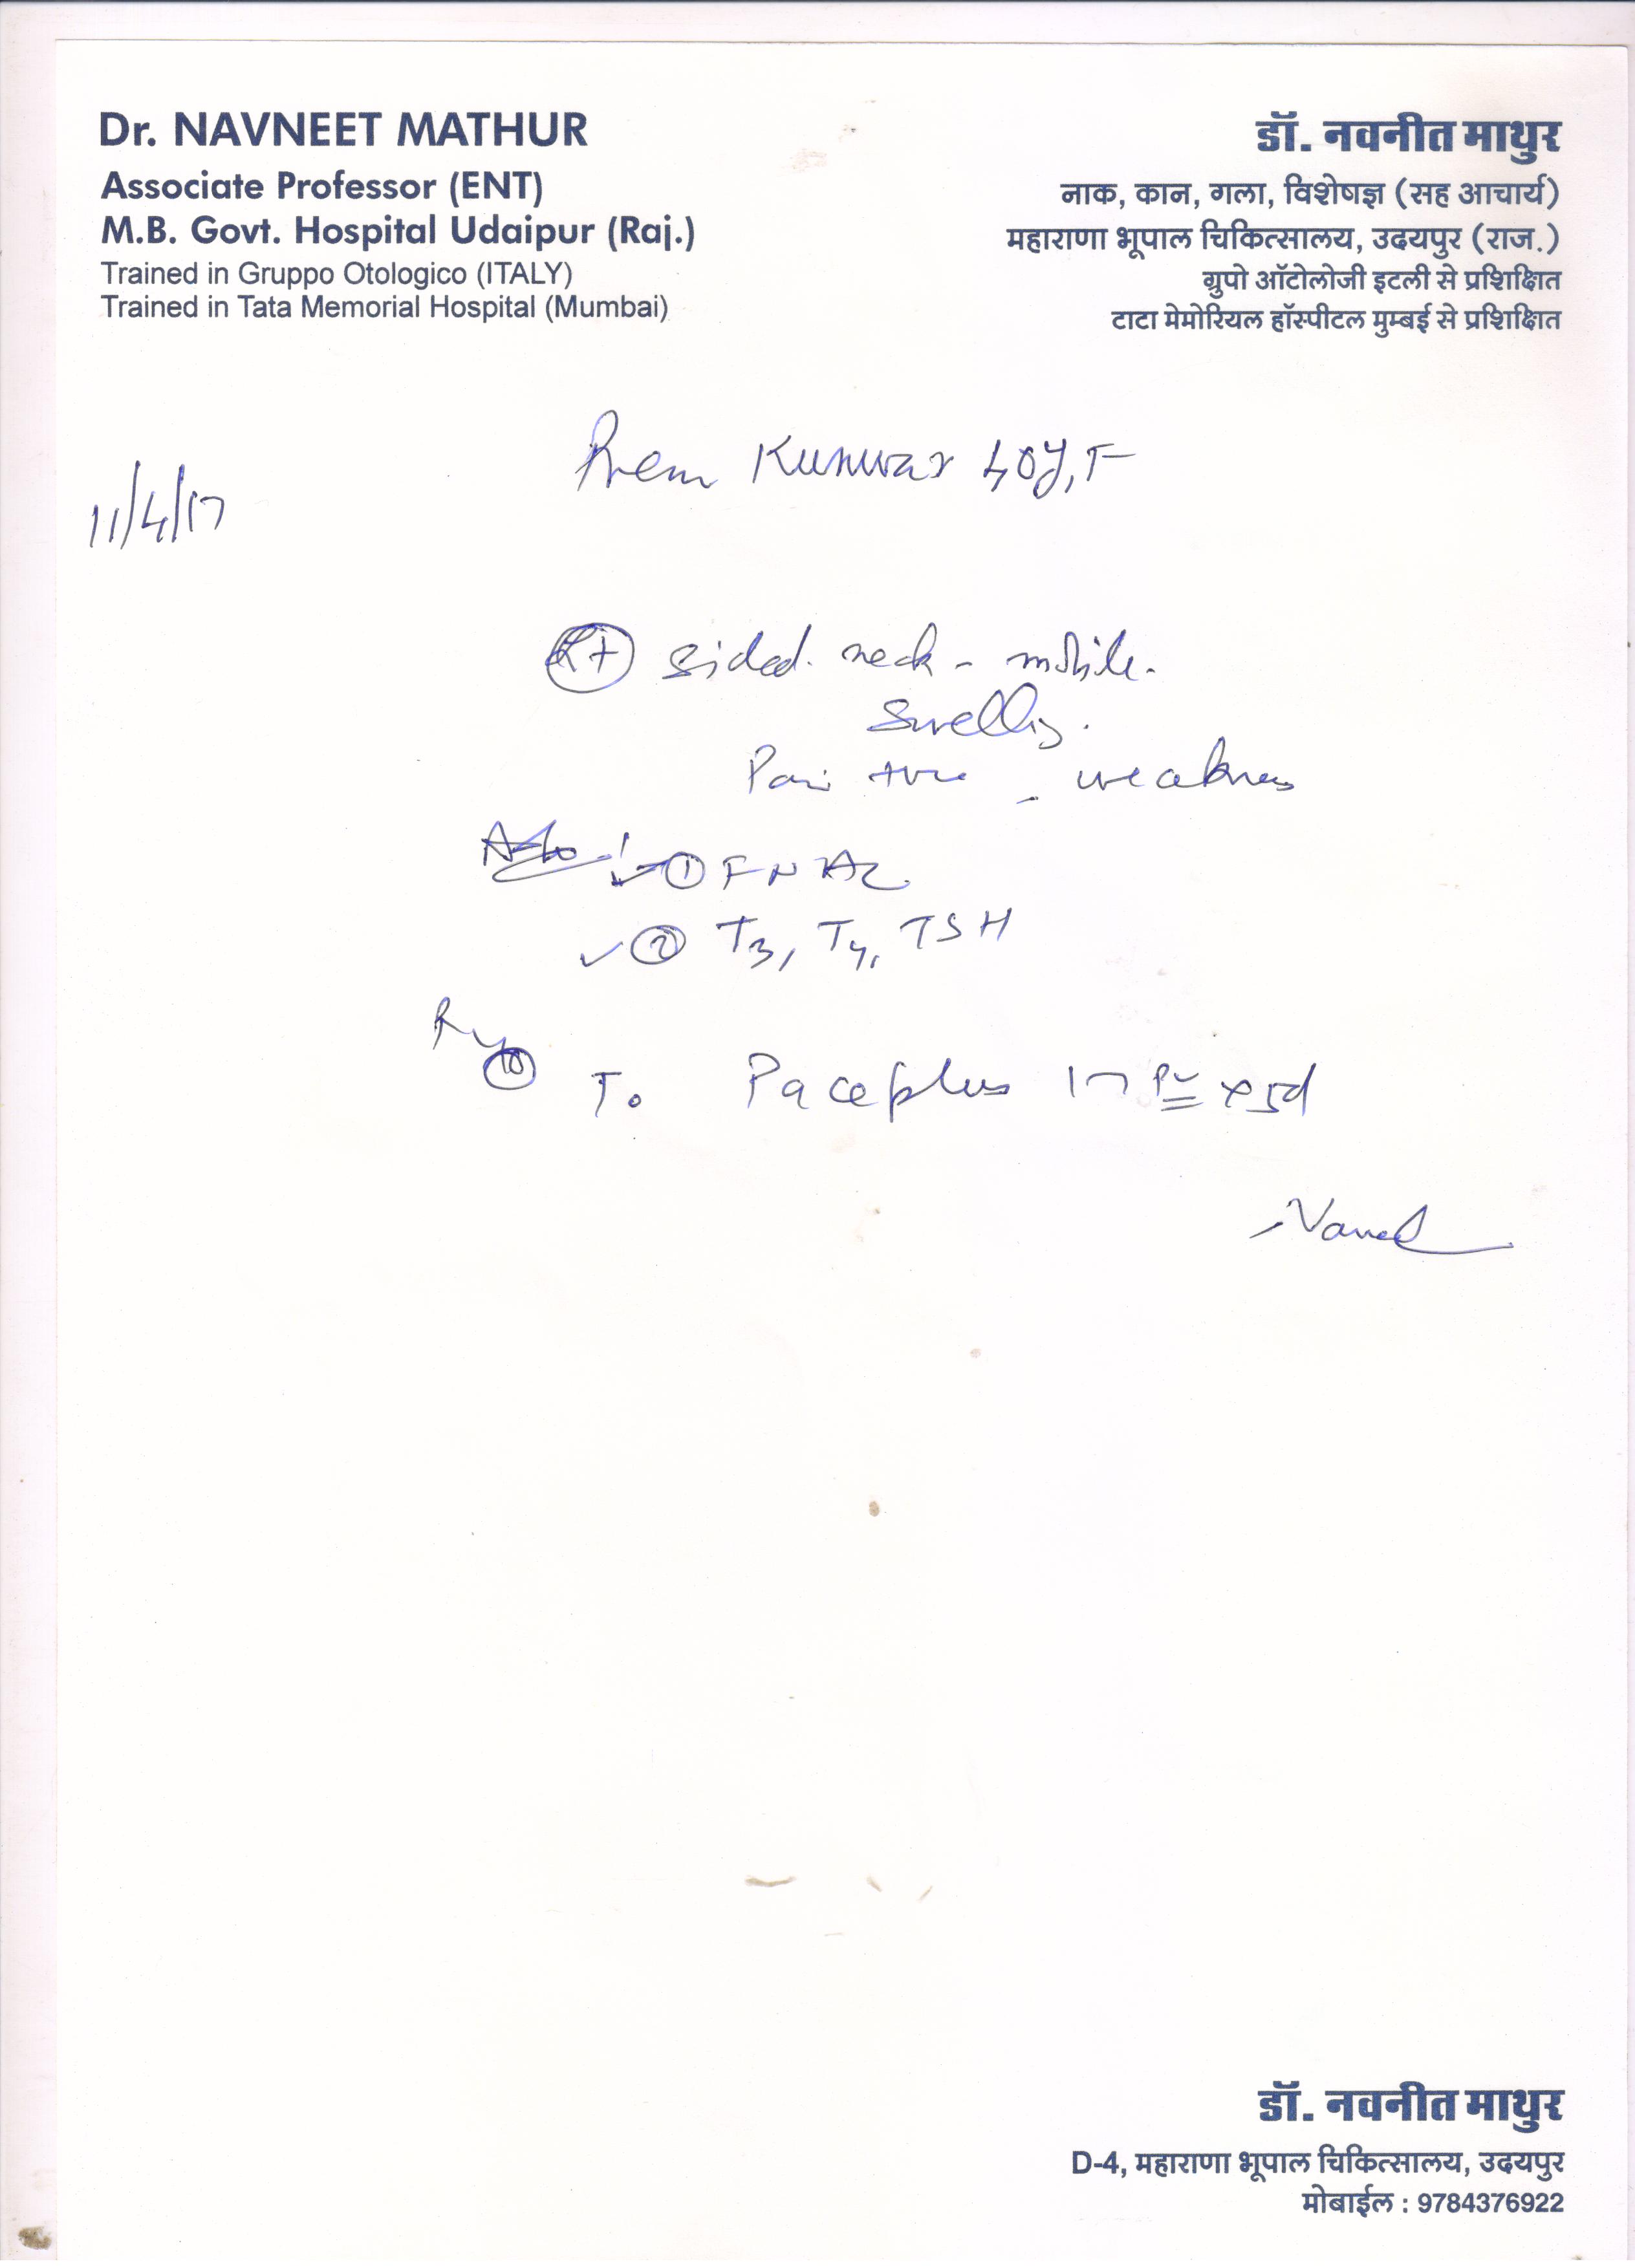 Dr. NAVNEET MATHUR
Associate Professor (ENT)
M.B. Govt. Hospital Udaipur (Raj.)
Trained in Gruppo Otologico (ITALY)
Trained in Tata Memorial Hospital (Mumbai)
डॉ. नवनीत माथुर
नाक, कान, गला, विशेषज्ञ (सह आचार्य)
महाराणा भूपाल चिकित्सालय, उदयपुर (राज.)
ग्रुपो ऑटोलोजी इटली से प्रशिक्षित
टाटा मेमोरियल हॉस्पीटल मुम्बई से प्रशिक्षित
Prem Kunwar 40y, F
11/4/17
sided neck - mobile.
Swelling.
Pain +ve - weakness
① FNAC
② T3, T4, TSH
Rx
T. Paceplus x 5d
डॉ. नवनीत माथुर
D-4, महाराणा भूपाल चिकित्सालय, उदयपुर
मोबाईल : 9784376922